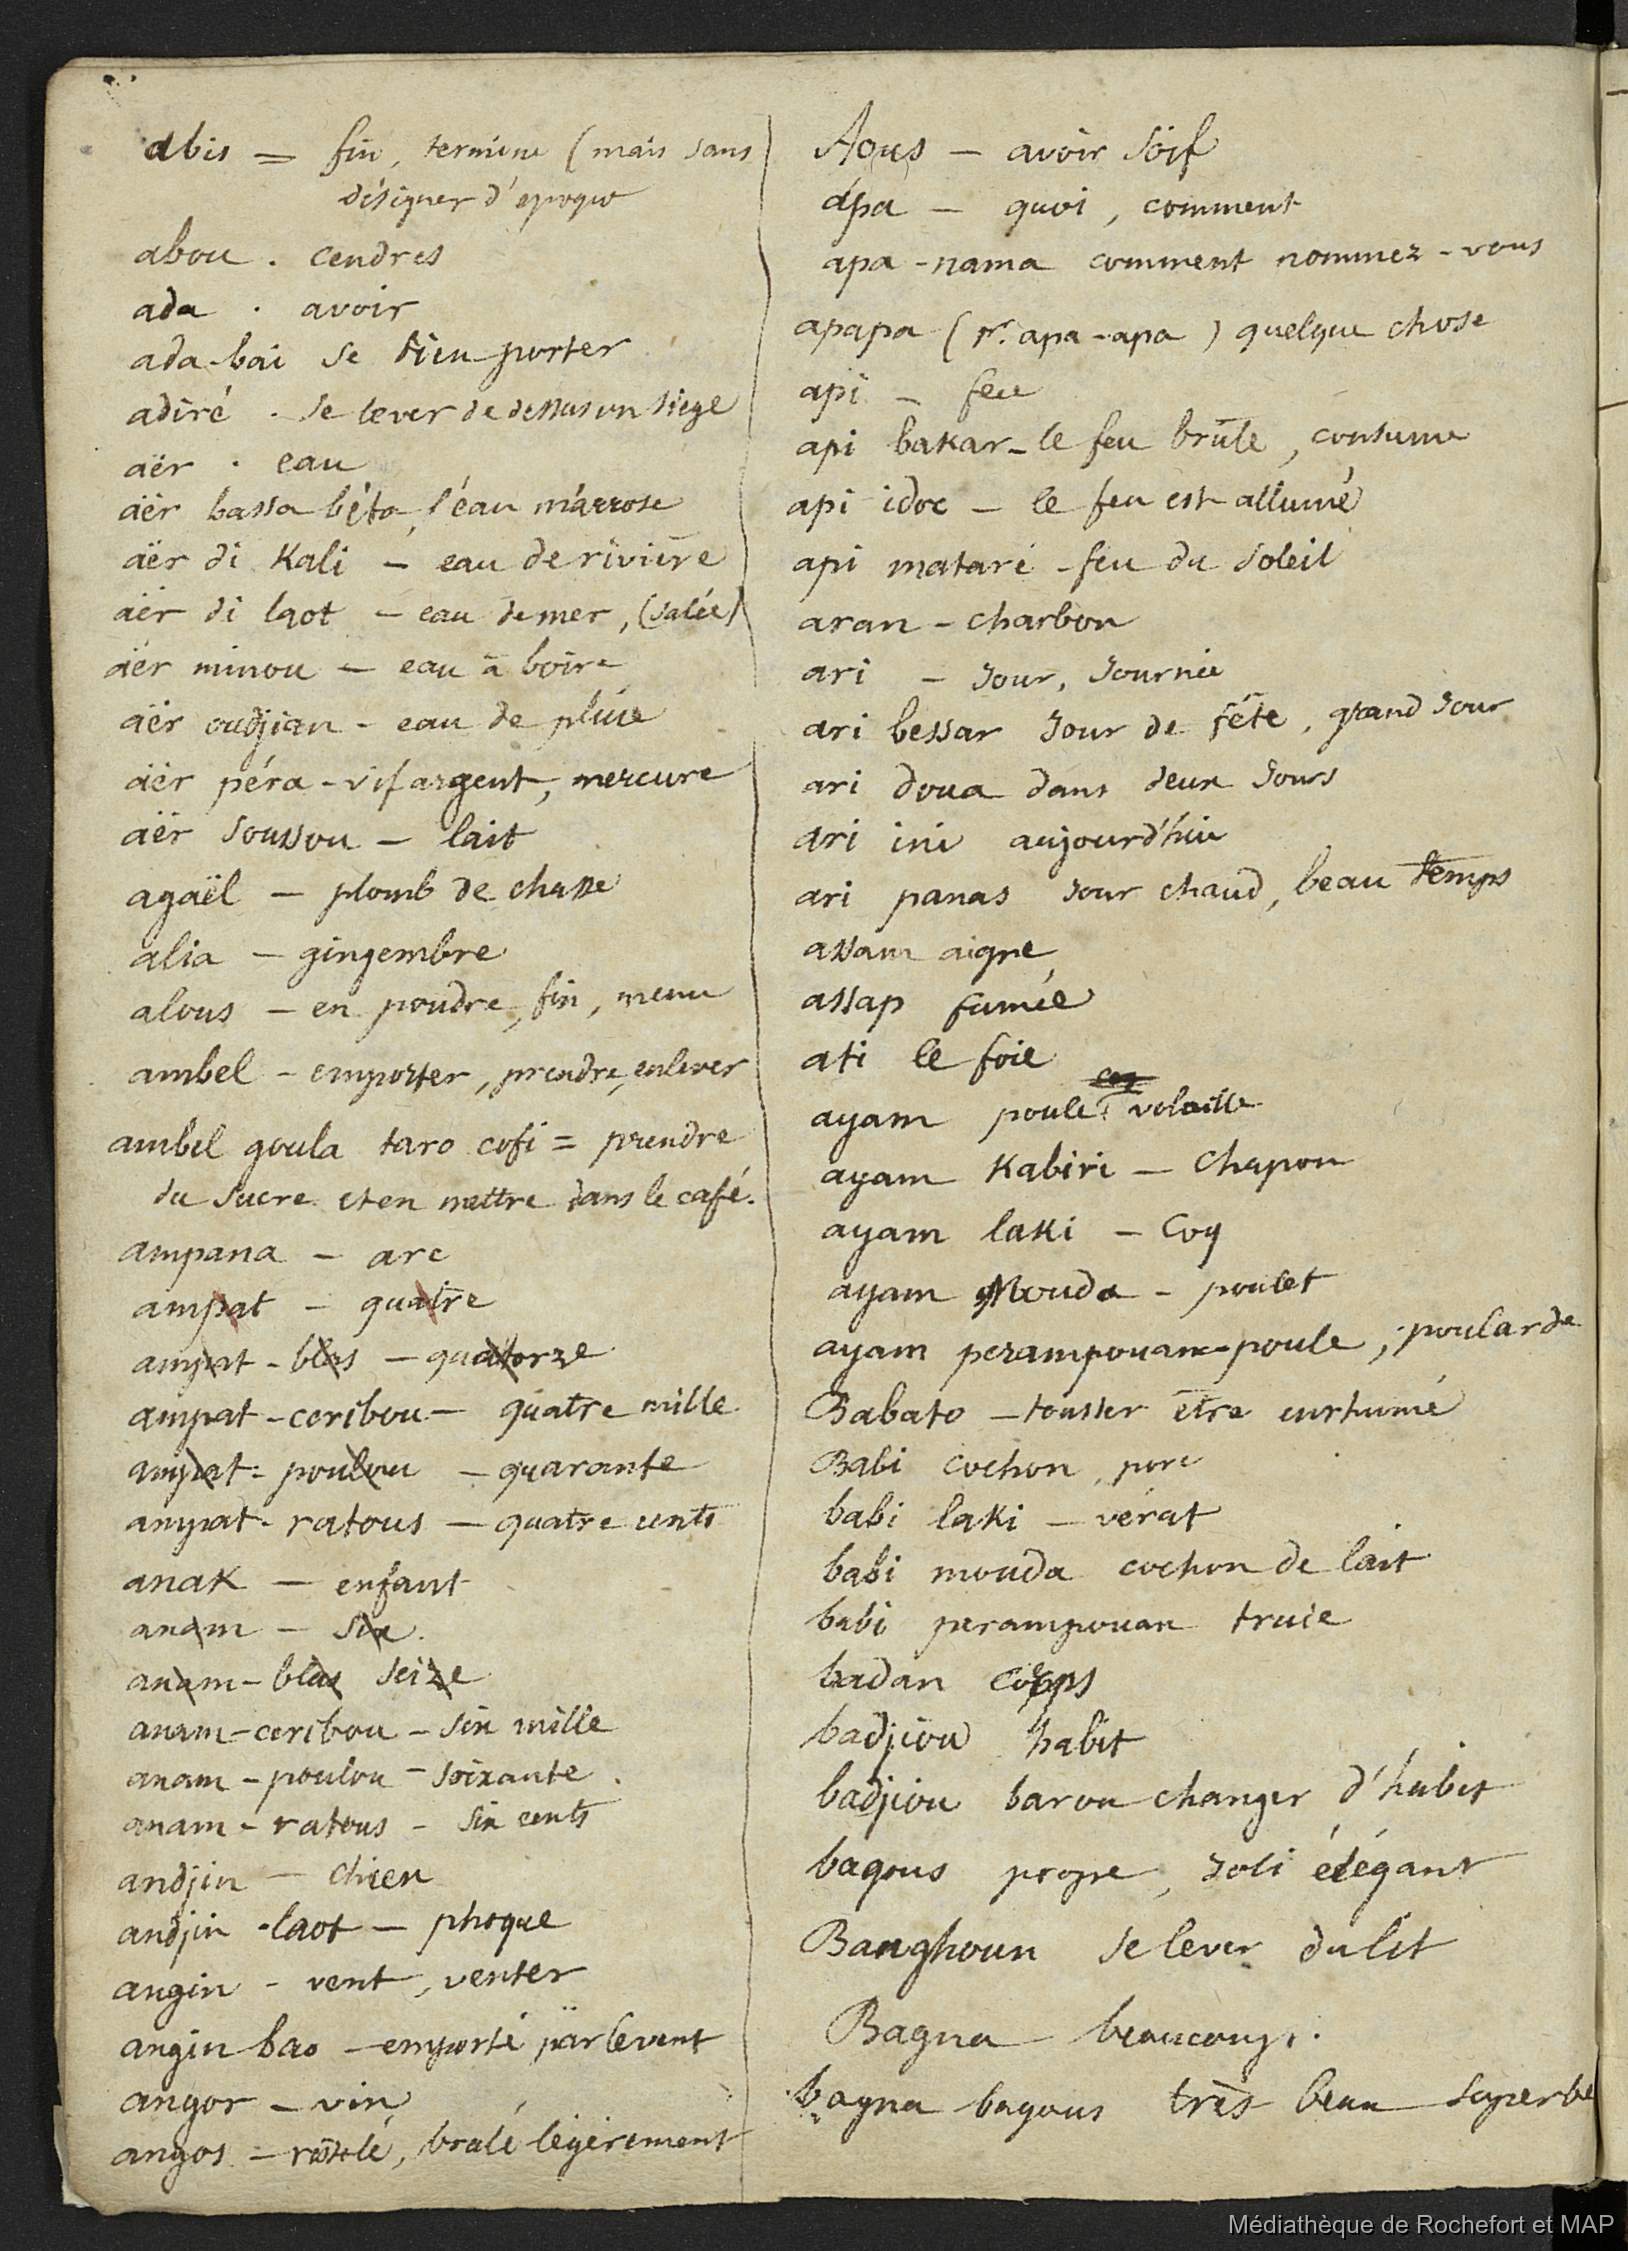 abis = fin, terminé (mais sans
désigner d'époque
abou . cendres
ada . avoir
ada-bai se bien porter
adiré . se lever de dessus un siege
aër . eau
äër bassa béta, l'éau m'arrose
äër di Kali - eau de riviere
äër di laot - eau de mer, (salée)
äër minou - eau à boire
äër oudjian - eau de pluie
äër péra - vif argent, mercure
äër soussou - lait
agaël - plomb de chasse
alia - gingembre
alous - en poudre, fin, menu
ambel - emporter, prendre, enlever
ambel goula taro cofi = prendre
du sucre et en mettre dans le café.
ampana - arc
ampat - quatre
ampat - blas - quatorze
ampat - ceribou - quatre mille
ampat - poulou - quarante
ampat - ratous - quatre cents
anak - enfant
anam - six.
anam - blas seize
anam - ceribou - six mille
anam - poulou - soixante.
anam - ratous - six cents
andjin - chien
andjin - laot - phoque
angin - vent, venter
angin bao - emporté par le vent
angor - vin
angos - , brulé légèrement
Aous - avoir soif
ápa - quoi, comment
apa - nama comment nommez-vous
apapa (pr. apa-apa) quelque chose
api - feu
api bakar - le feu brûle, consume
api idoc - le feu est allumé
api mataré - feu du soleil
aran - charbon
ari - jour, journée
ari bessar jour de fête, grand jour
ari doua dans deux jours
ari ini aujourd'hui
ari panas jour chaud, beau temps
assam aigre
assap fumée
ati le foie
ayam poule, coq volaille
ayam Kabiri - chapon
ayam laki - Coq
ayam Mouda - poulet
ayam perampouan - poule, poularde
Babato - tousser être enrhumé
Babi cochon, porc
babi laki - vérat
babi mouda cochon de lait
babi perampouan truie
badan corps
badjiou habit
badjiou barou changer d'habit
bagous propre, joli élégant
Banghoun se lever du lit
Bagna beaucoup.
bagna bagous très beau superbe
Médiathèque de Rochefort et MAP